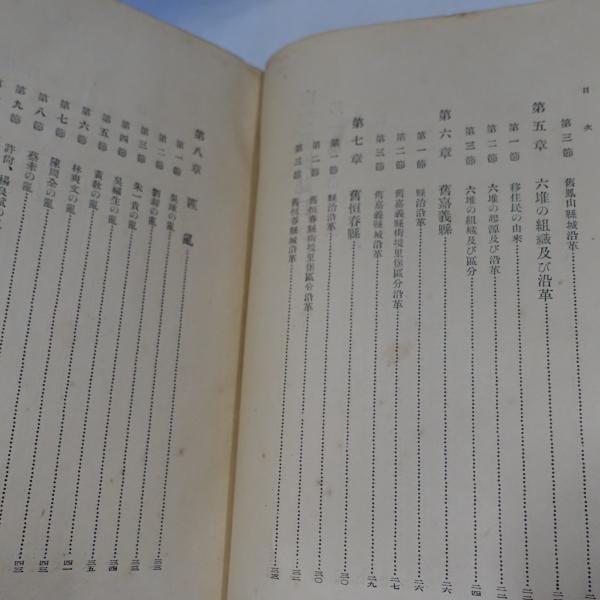 目次
第三節 舊鳳山縣城沿革
第五章 六堆の組織及び沿革
第一節 移住民の由來
第二節 六堆の起源及び沿革 二四
第三節 六堆の組織及び區分 二四
第六章 舊嘉義縣 二六
第一節 縣治沿革 二六
第二節 舊嘉義縣街境里保區分沿革 二七
第三節 舊嘉義縣城沿革 二九
第七章 舊恒春縣 三〇
第一節 縣治沿革 三〇
第二節 舊恒春縣街境里保區分沿革 三一
第三節 舊恒春縣城沿革
第八章 匪亂
第一節 吳球の亂 三三
第二節 劉却の亂 三三
第三節 朱一貴の亂 三三
第四節 吳福生の亂 三四
第五節 黃教の亂 三五
第六節 林爽文の亂
第七節 陳周全の亂 四一
第八節 蔡牽の亂 四三
第九節 許尙、楊良斌の亂 四三